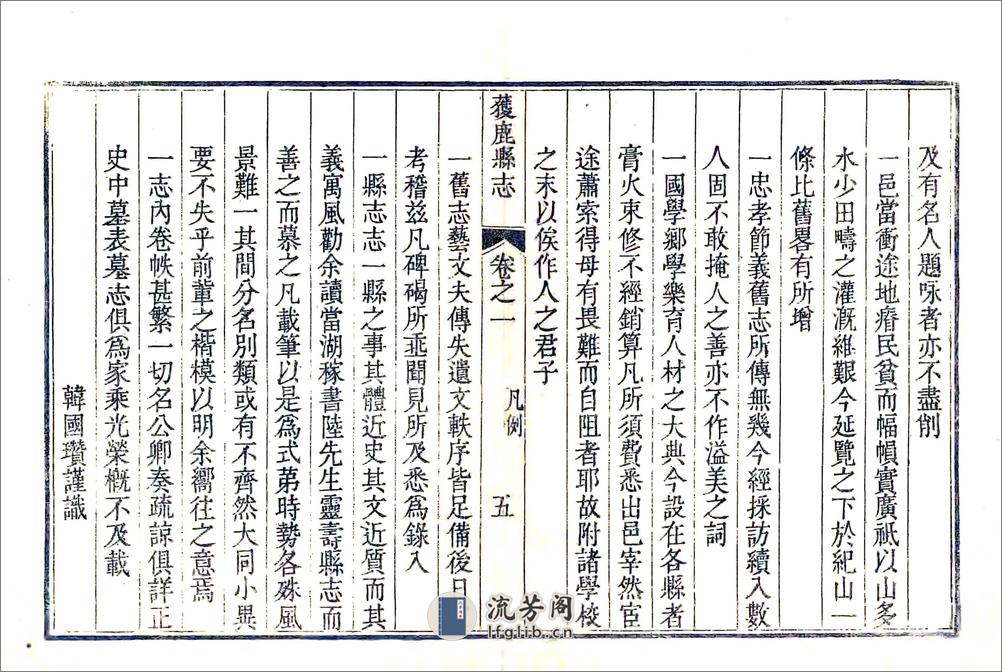 及有名人題咏者亦不盡削
一邑當衝途地瘠民貧而幅幀實廣祗以山多
水少田疇之灌溉維艱今延覽之下於紀山一
條比舊畧有所增
一忠孝節義舊志所傳無幾今經採訪續入數
人固不敢掩人之善亦不作溢美之詞
一國學鄉學樂育人材之大典今設在各縣者
膏火束修不經銷算凡所須費悉出邑宰然宦
途蕭索得毋有畏難而自阻者耶故附諸學校
之末以俟作人之君子
獲鹿縣志 卷之一 凡例 五
一舊志藝文夫傳失遺文軼序皆足備後日
考稽兹凡碑碣所垂聞見所及悉爲錄入
一縣志志一縣之事其體近史其文近質而其
義寓風勸余讀當湖稼書陸先生靈壽縣志而
善之而慕之凡載筆以是爲式第時勢各殊風
景難一其間分名別類或有不齊然大同小異
要不失乎前輩之楷模以明余嚮往之意焉
一志內卷帙甚繁一切名公卿奏疏諒俱詳正
史中墓表墓志俱爲家乘光榮概不及載
韓國瓚謹識
流芳阁
lfglib.cn